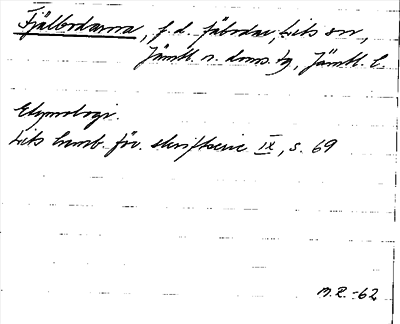 Fjällbodarna, f.d. fäbodar, Lits sn,
Jämtl. n. doms. tg, Jämtl. l.
Etymologi.
Lits hemb. för. skriftserie IX, s. 69
M.R.-62